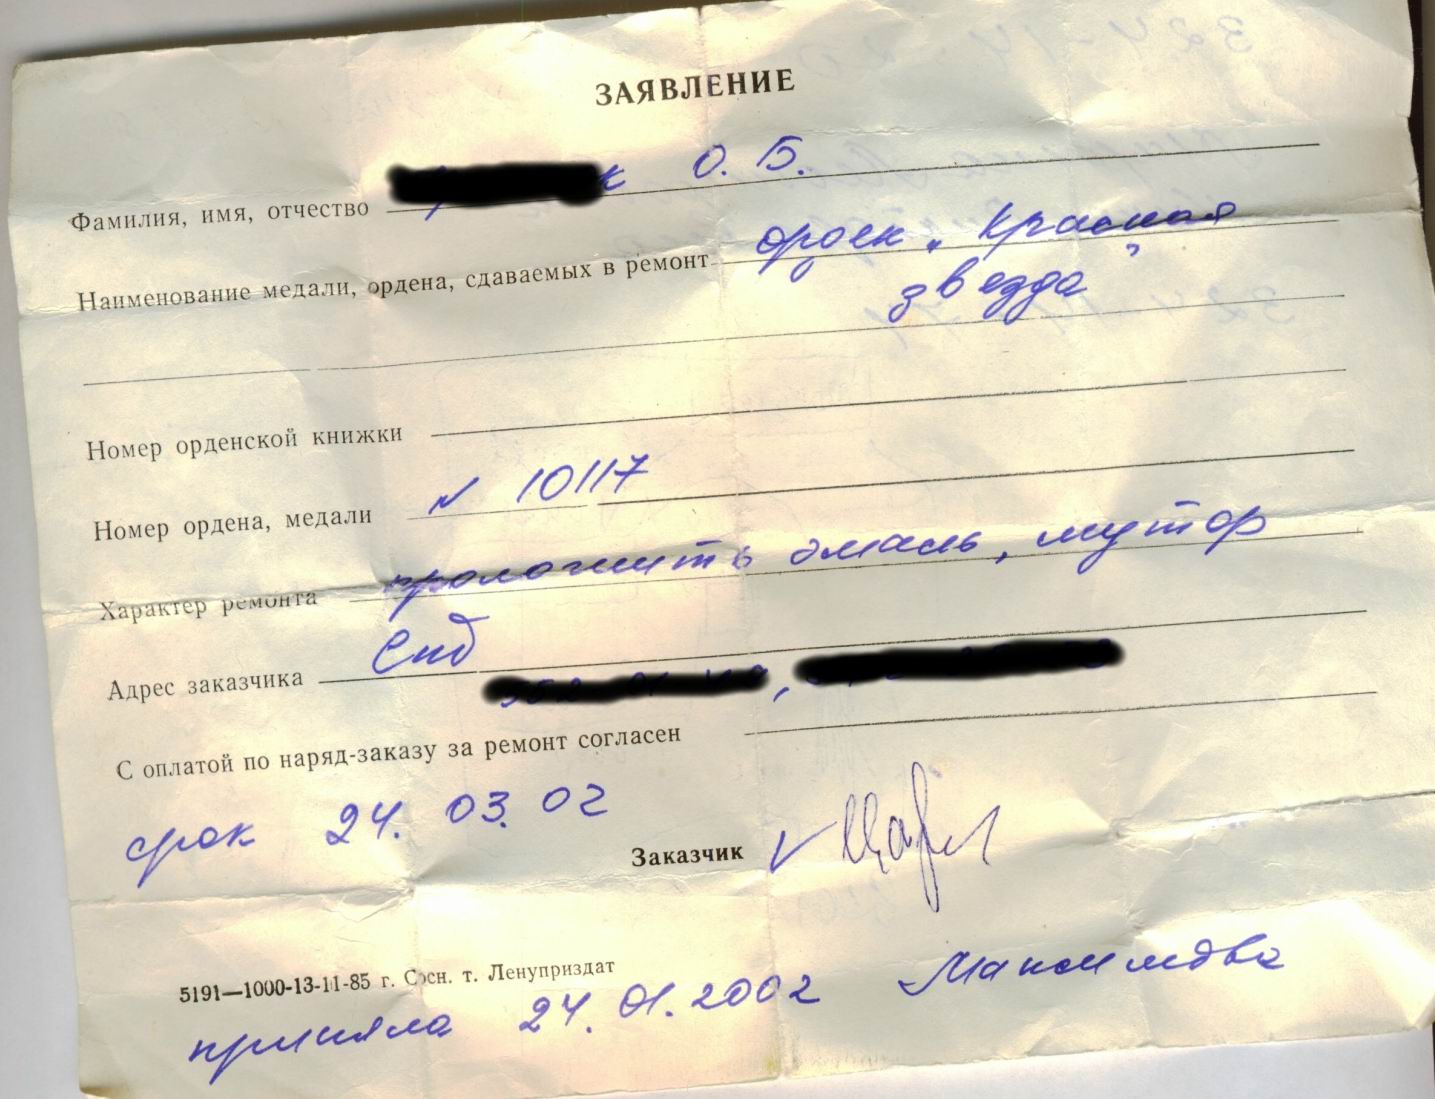 ЗАЯВЛЕНИЕ
Фамилия, имя, отчество О. Б.
Наименование медали, ордена, сдаваемых в ремонт орден „Красная
звезда"
Номер орденской книжки
Номер ордена, медали № 10117
Характер ремонта проложить эмаль, мутор
Адрес заказчика Спб
С оплатой по наряд-заказу за ремонт согласен
срок 24. 03. 02
Заказчик
5191—1000-13-11-85 г. Сосн. т. Ленуприздат
приняла 24. 01. 2002 Максимова